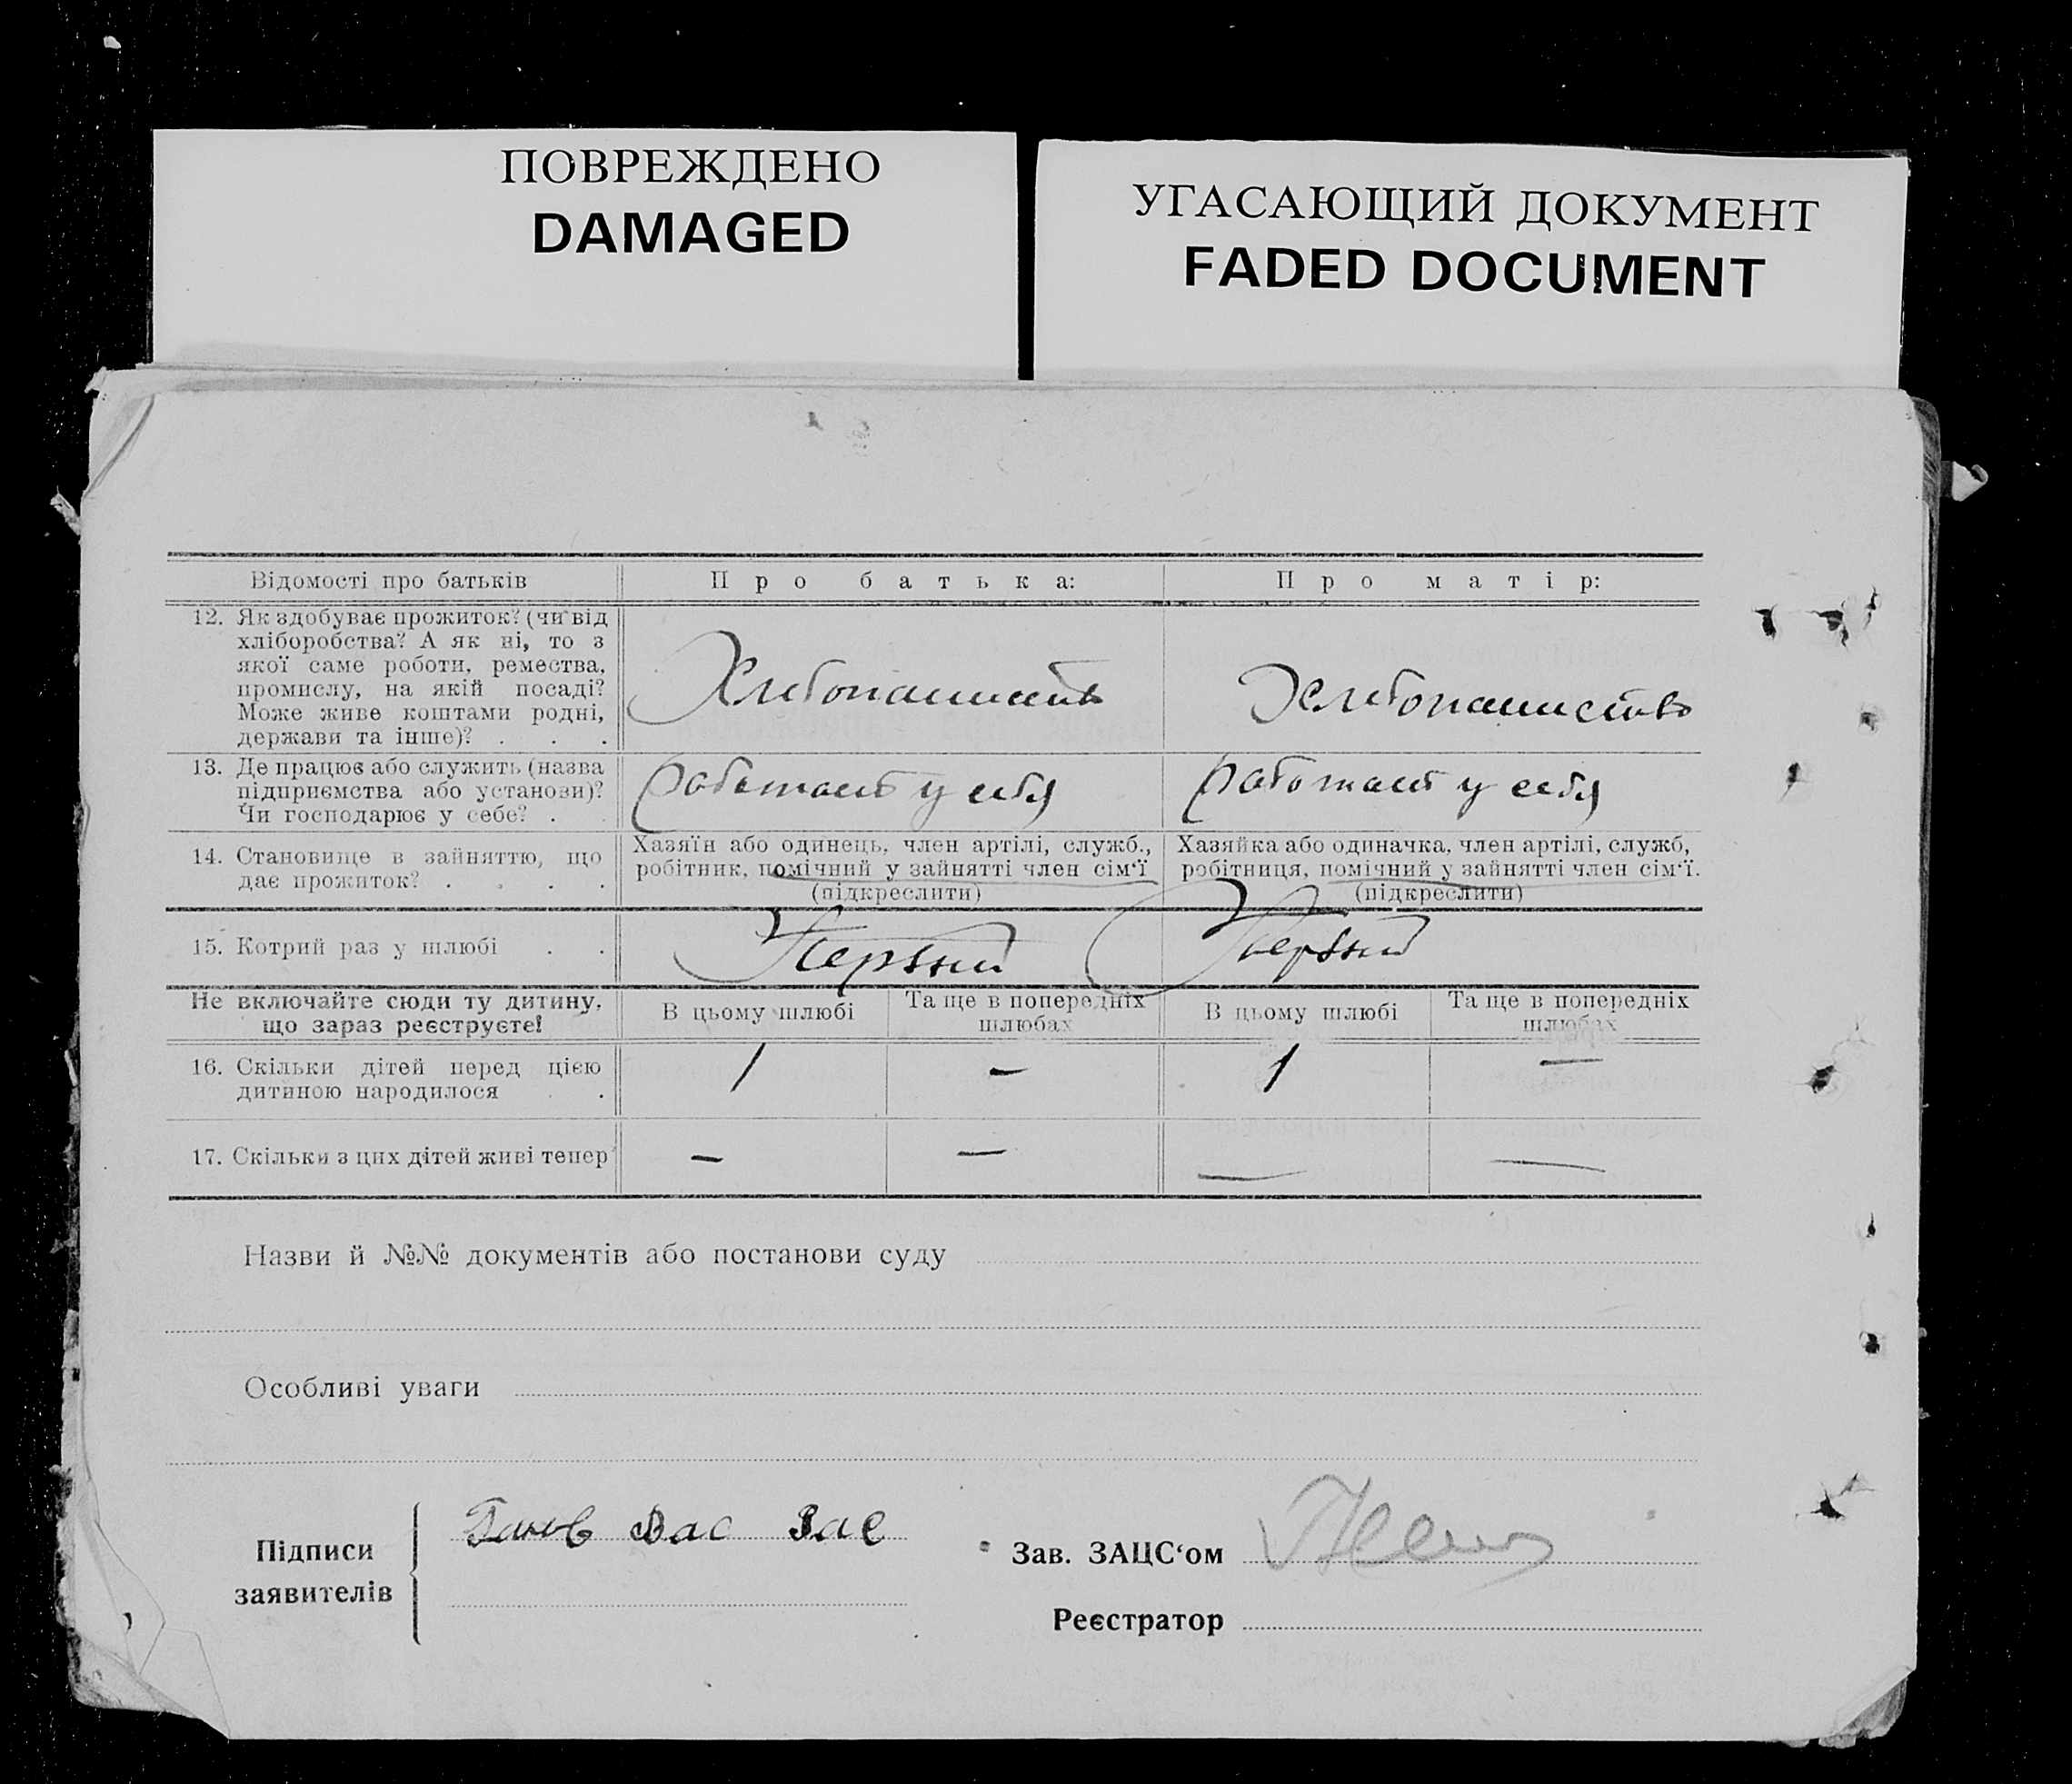 ПОВРЕЖДЕНО
DAMAGED
УГАСАЮЩИЙ ДОКУМЕНТ
FADED DOCUMENT
Відомості про батьків
Про батька:
Про матір:
12. Як здобуває прожиток? (чи від
хліборобства? А як ні, то з
якої саме роботи, ремества,
промислу, на якій посаді?
Може живе коштами родні,
держави та інше)? . . .
Хлебопашиств
Хлебопашиство
13. Де працює або служить (назва
підприємства або установи)?
Чи господарює у себе? .
Работает у себя
Работает у себя
14. Становище в зайняттю, що
дає прожиток? . . . .
Хазяїн або одинець, член артілі, служб.,
робітник, помічний у зайнятті член сім‘ї
(підкреслити)
Хазяйка або одиначка, член артілі, служб,
робітниця, помічний у зайнятті член сім‘ї.
(підкреслити)
15. Котрий раз у шлюбі . .
Первый
Первый
Не включайте сюди ту дитину,
що зараз реєструєте!
В цьому шлюбі
Та ще в попередніх
шлюбах
В цьому шлюбі
Та ще в попередніх
шлюбах
16. Скільки дітей перед цією
дитиною народилося . .
1
—
1
—
17. Скільки з цих дітей живі тепер
—
—
—
—
Назви й №№ документів або постанови суду
Особливі уваги
Підписи
заявителів
Вас Вас
Зав. ЗАЦС‘ом
Реєстратор